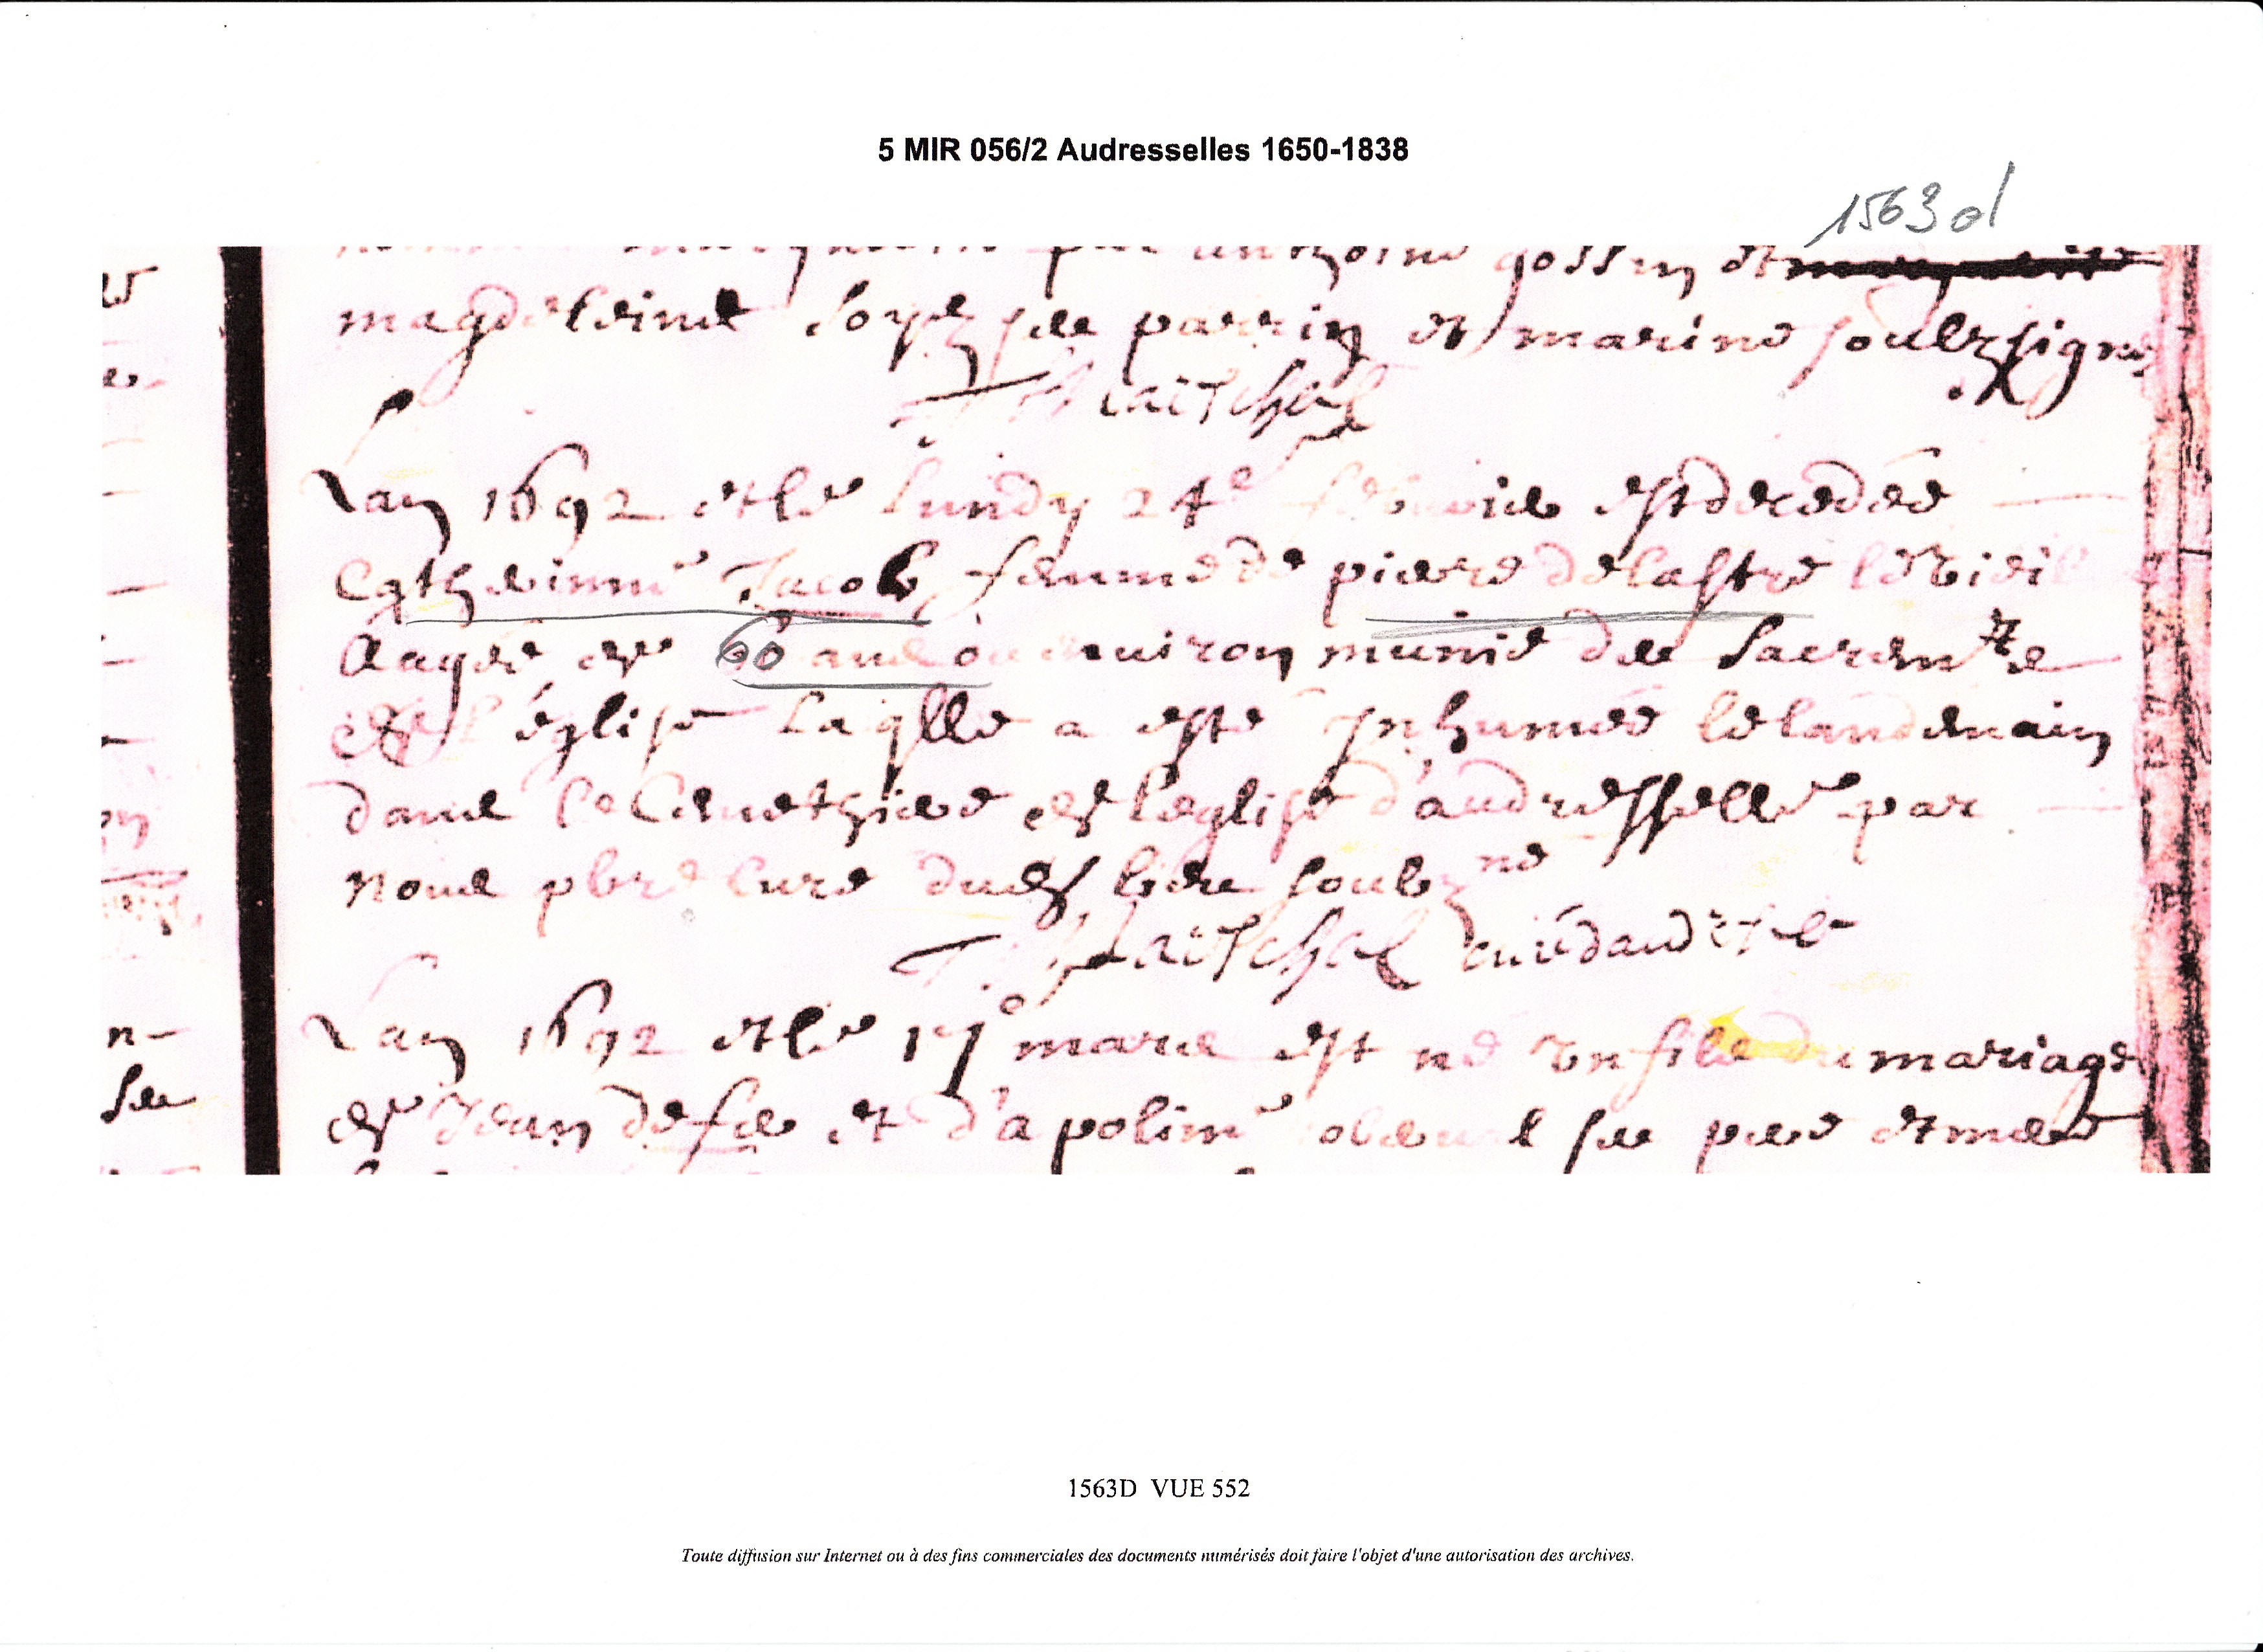 5 MIR 056/2 Audresselles 1650-1838
1563d
par anthoine gossin et
magdeleine ses parrin et marine soubzsigné
Lan 1692 et le lundy 24e febvrier est decedée
Catherinne Jacob femme de pierre delastre le vieil
Aagée de 60 ans ou environ munie des Sacremts
de l'église laqlle a esté Inhumée le landemain
dans le Cemethiere de l'eglise d'audresselle par
nous pbre curé dudt lieu soubzné
curé daudresle
Lan 1692 et le mars est né un fils du mariage
de Jean et d'apoline ses pere et mere
n-
ses
1563D VUE 552
Toute diffusion sur Internet ou à des fins commerciales des documents numérisés doit faire l'objet d'une autorisation des archives.